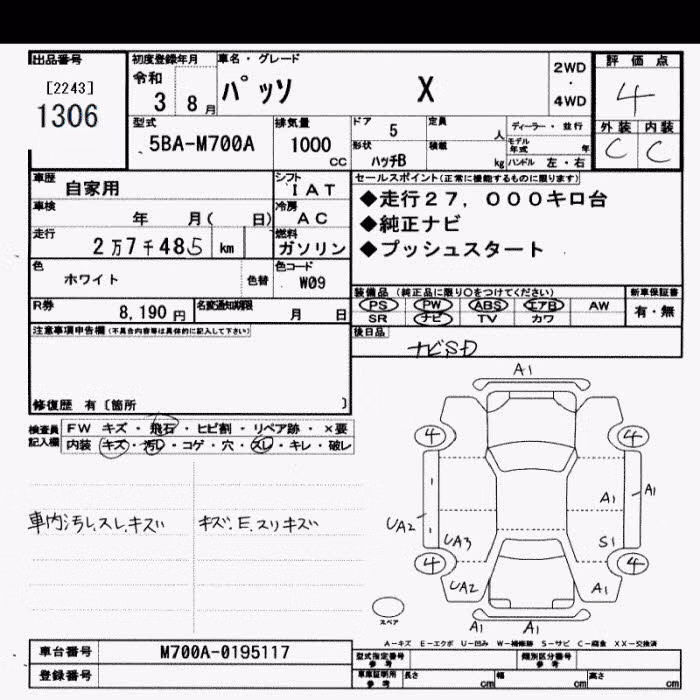 出品番号
[2243]
1306
初度登録年月
令和
3 8月
車名・グレード
パッソ X
2WD
・
4WD
評価点
4
外装 内装
C C
型式
5BA-M700A
排気量
1000
CC
ドア
5
定員
人
形状
ハッチB
積載
kg
ディーラー・並行
モデル年式 年
ハンドル 左・右
車歴
自家用
シフト
IAT
車検
年 月( 日)
冷房
AC
走行
2万7千485 km
燃料
ガソリン
色
ホワイト
色替
色コード
W09
R券
8,190円
名変通知期限
月 日
セールスポイント(正常に機能するものに限ります)
◆走行27,000キロ台
◆純正ナビ
◆プッシュスタート
装備品(純正品に限り○をつけてください)
PS PW ABS エアB AW
SR ナビ TV カワ
新車保証書
有・無
後日品
ナビSD
注意事項申告欄(不具合内容等は具体的に記入して下さい)
修復歴 有〔箇所 〕
検査員記入欄
FW キズ・飛石・ヒビ割・リペア跡・×要
内装 キズ・汚レ・コゲ・穴・スレ・キレ・破レ
車内汚レ、スレ、キズ
キズ、E、スリキズ
A1
4 4
A1 A1
UA2 UA3
S1
4 4
UA2 A1
A1 A1
スペア
A-キズ E-エクボ U-凹み W-補修跡 S-サビ C-腐食 XX-交換済
車台番号
M700A-0195117
登録番号
型式指定番号
参考
類別区分番号
参考
車庫証明用
参考
長さ cm
幅 cm
高さ cm